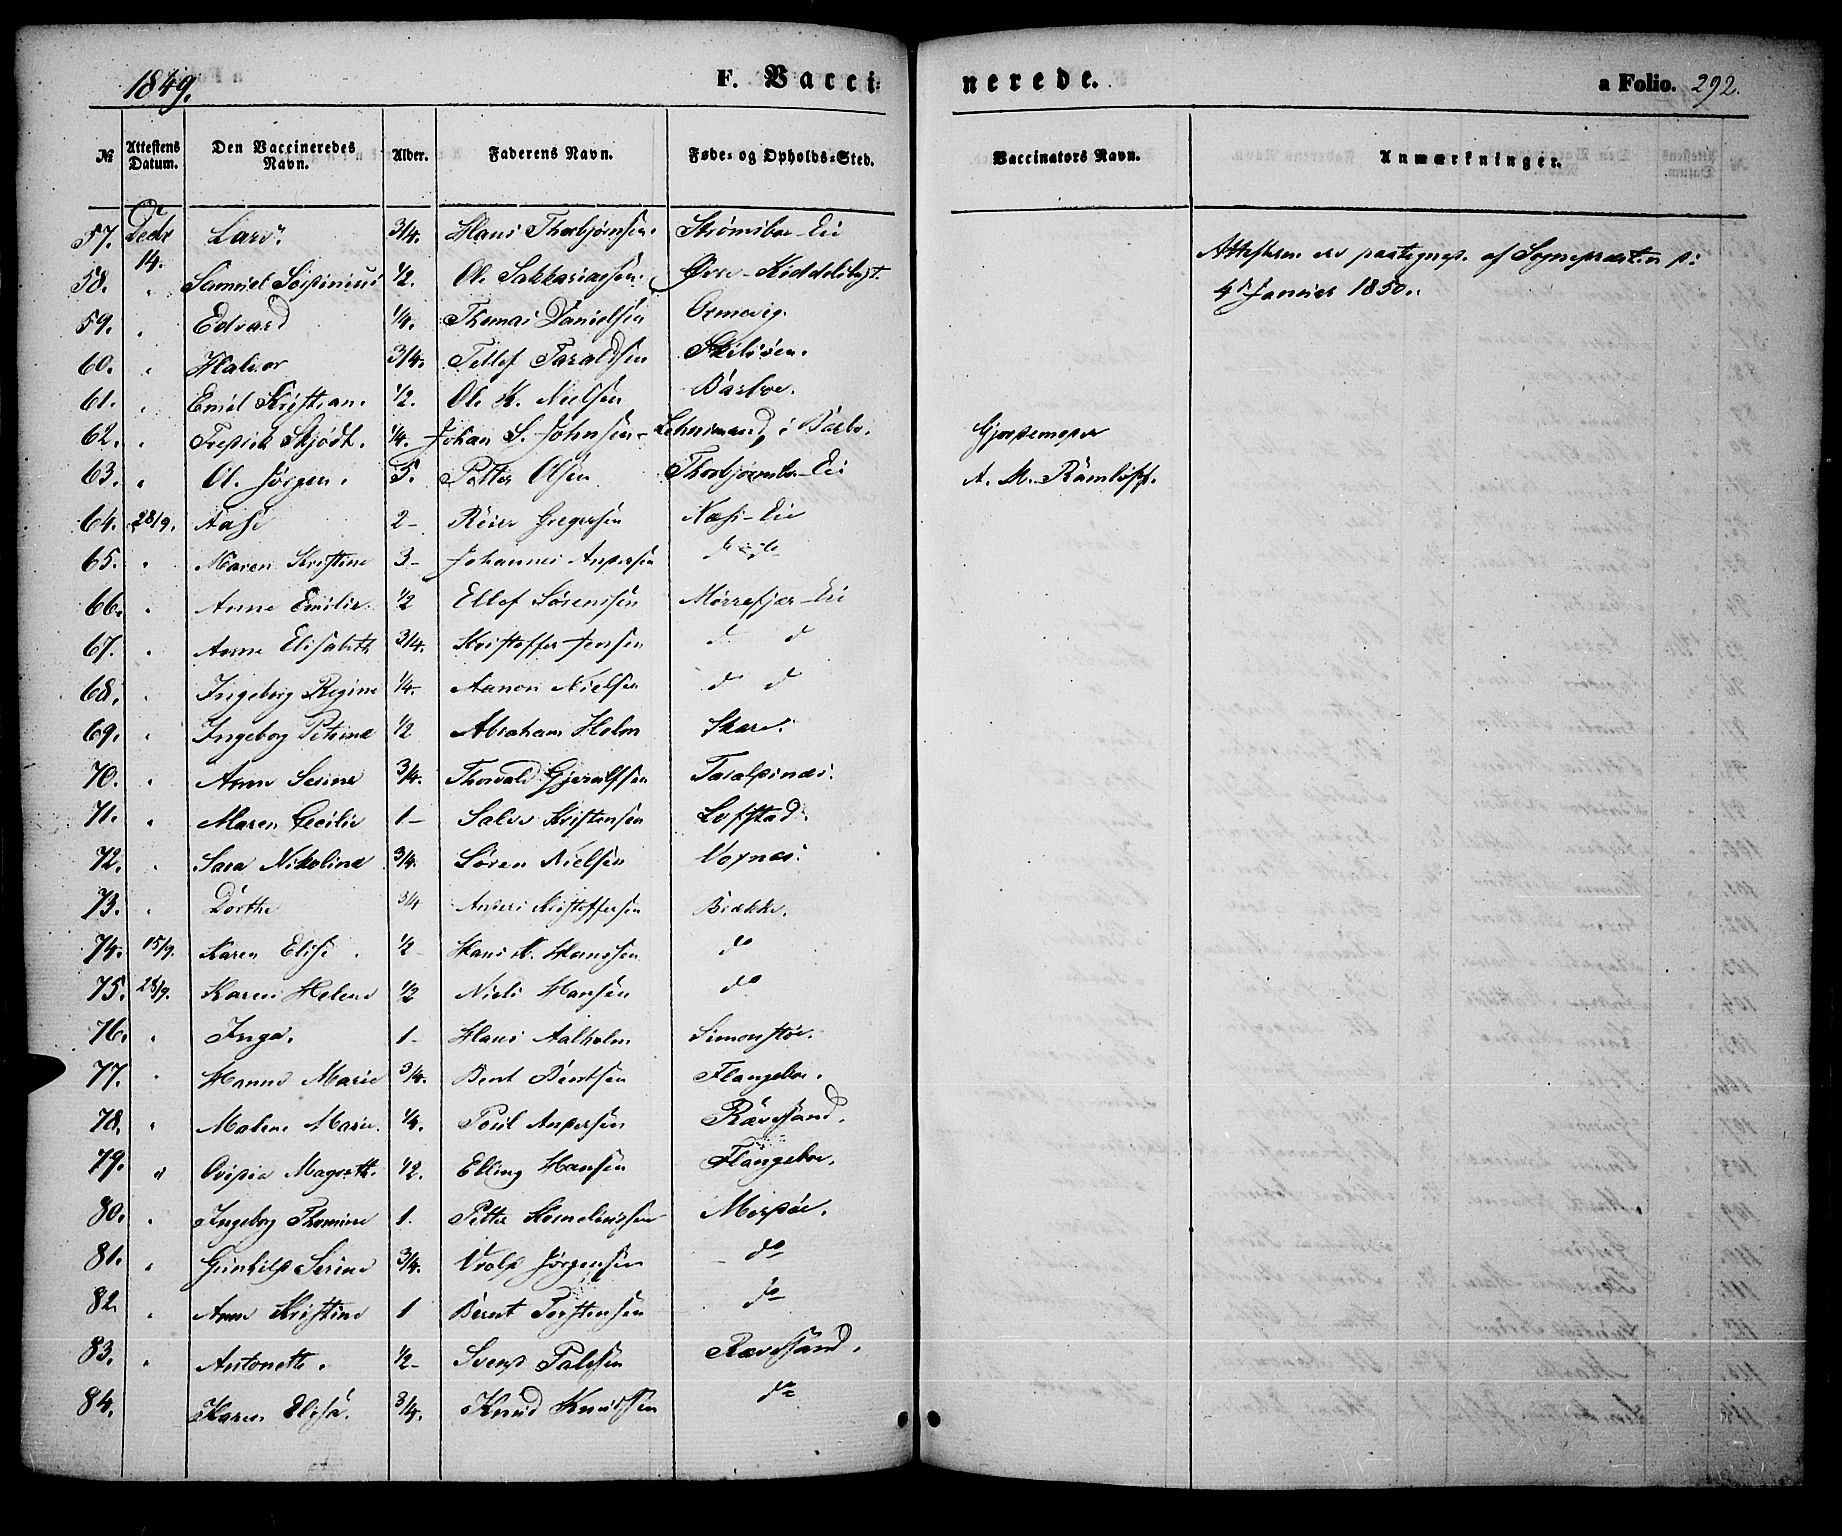 1849. F. Vacci- nerede. a Folio. 292.
№ Attestens Datum. Den Vaccineredes Navn. Alder. Faderens Navn. Føde- og Opholds-Sted. Vaccinators Navn. Anmærkninger.
57. Decbr 14. Lars. 3/4. Hans Thorbjørnsen. Strømsboe-Eie
Attesterne ere paategnet af Sognepræsten
4de Januar 1850.
58. " Samuel 1/2. Ole Sakkariassen.
59. " Edvard 1/4. Thomas Danielsen Ormevig.
60. " Halvor 3/4. Tellef Taraldsen Skilsøen.
61. " Emil Kristian. 1/2. Ole K. Nielsen Barboe.
62. " Fredrik Skjødt. 1/4. Johan S. Johnsen- Lehnsmand, i Barbo. Gjordemoder
63. " Ole Jørgen. 5. Petter Olsen Thorbjørnsboe-Eie A. M. Rømloft.
64. 28/9. Aase 2- Reier Gregersen Næs-Eie
65. " Maren Kristine 3- Johannes Andersen
66. " Anne Emilie. 1/2 Ellef Sørenssen Mørrefjær-Eie
67. " Anne Elisabeth 3/4. Kristoffer Jenssen d d
68. " Ingeborg Regine 1/4. Aanon Nielsen d d
69. " Ingeborg Petrine 1/2 Abraham Holm Skare.
70. " Anne Serine 3/4. Thorvald Gjerulfsen Taraldsnæs.
71. " Maren Cecilie 1- Salve Kristensen Loftstad.
72. " Sara Nikoline 3/4. Søren Nielsen Voxnæs.
73. " Dorthe 3/4 Anders Kristoffersen Brække.
74. 15/9. Karen Elise. 1/2 Hans K. Hanssen do
75. 28/9. Karen Helene 1/2 Niels Hansen do
76. " Inga. 1- Hans Aalholm Simonstøe.
77. " Hanne Marie 3/4. Bent Bentsen Flangeboe.
78. " Malene Marie. 1/4. Poul Andersen Rævesand.
79. " Ovidia Magrethe. 1/2. Elling Hansen Flangeboe.
80. " Ingeborg Thomine 1. Petter Kornelinssen Merdøe.
81. " Gunhild Serine 3/4. Vrold Jørgensen do
82. " Anne Kristine 1 Bernt Terstensen do
83. " Antonette. 1/2- Svend Palesen Rævesand.
84. Karen Elisa. 3/4. Knud Knudssen do